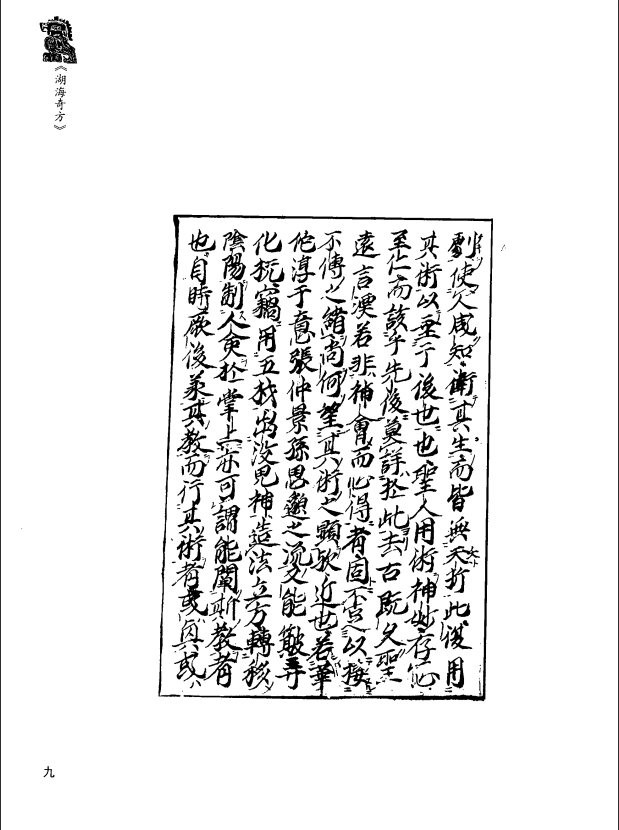 《湖海奇方》
劑使人咸知衛其生而皆無夭折此復用
其術以垂丁後世也聖人用術神妙存心
至仁而該乎先後莫詳於此去古既久聖
遠言湮若非神會而心得者固不足以接
不傳之緒尚何望其術之顯歟近世若華
佗淳于意張仲景孫思邈之流又能
化機竊用五材出沒鬼神造法立方轉移
陰陽制人命於掌上亦可謂能闡斯教者
也自時厥後羕其教而行其術者或真或
九